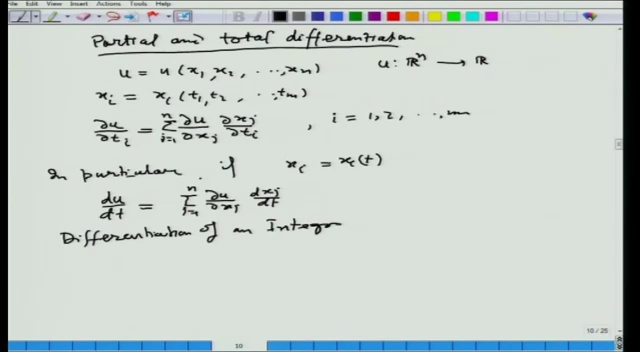 Edit View Insert Actions Tools Help
Partial and total differentiation
u = u(x₁, x₂, ..., xₙ) u: ℝⁿ → ℝ
xᵢ = xᵢ(t₁, t₂, ..., tₘ)
∂u/∂tᵢ = Σⁿⱼ₌₁ ∂u/∂xⱼ ∂xⱼ/∂tᵢ , i = 1, 2, ..., m
In particular, if xᵢ = xᵢ(t)
du/dt = Σⁿⱼ₌₁ ∂u/∂xⱼ dxⱼ/dt
Differentiation of an Integra
10 / 25
10